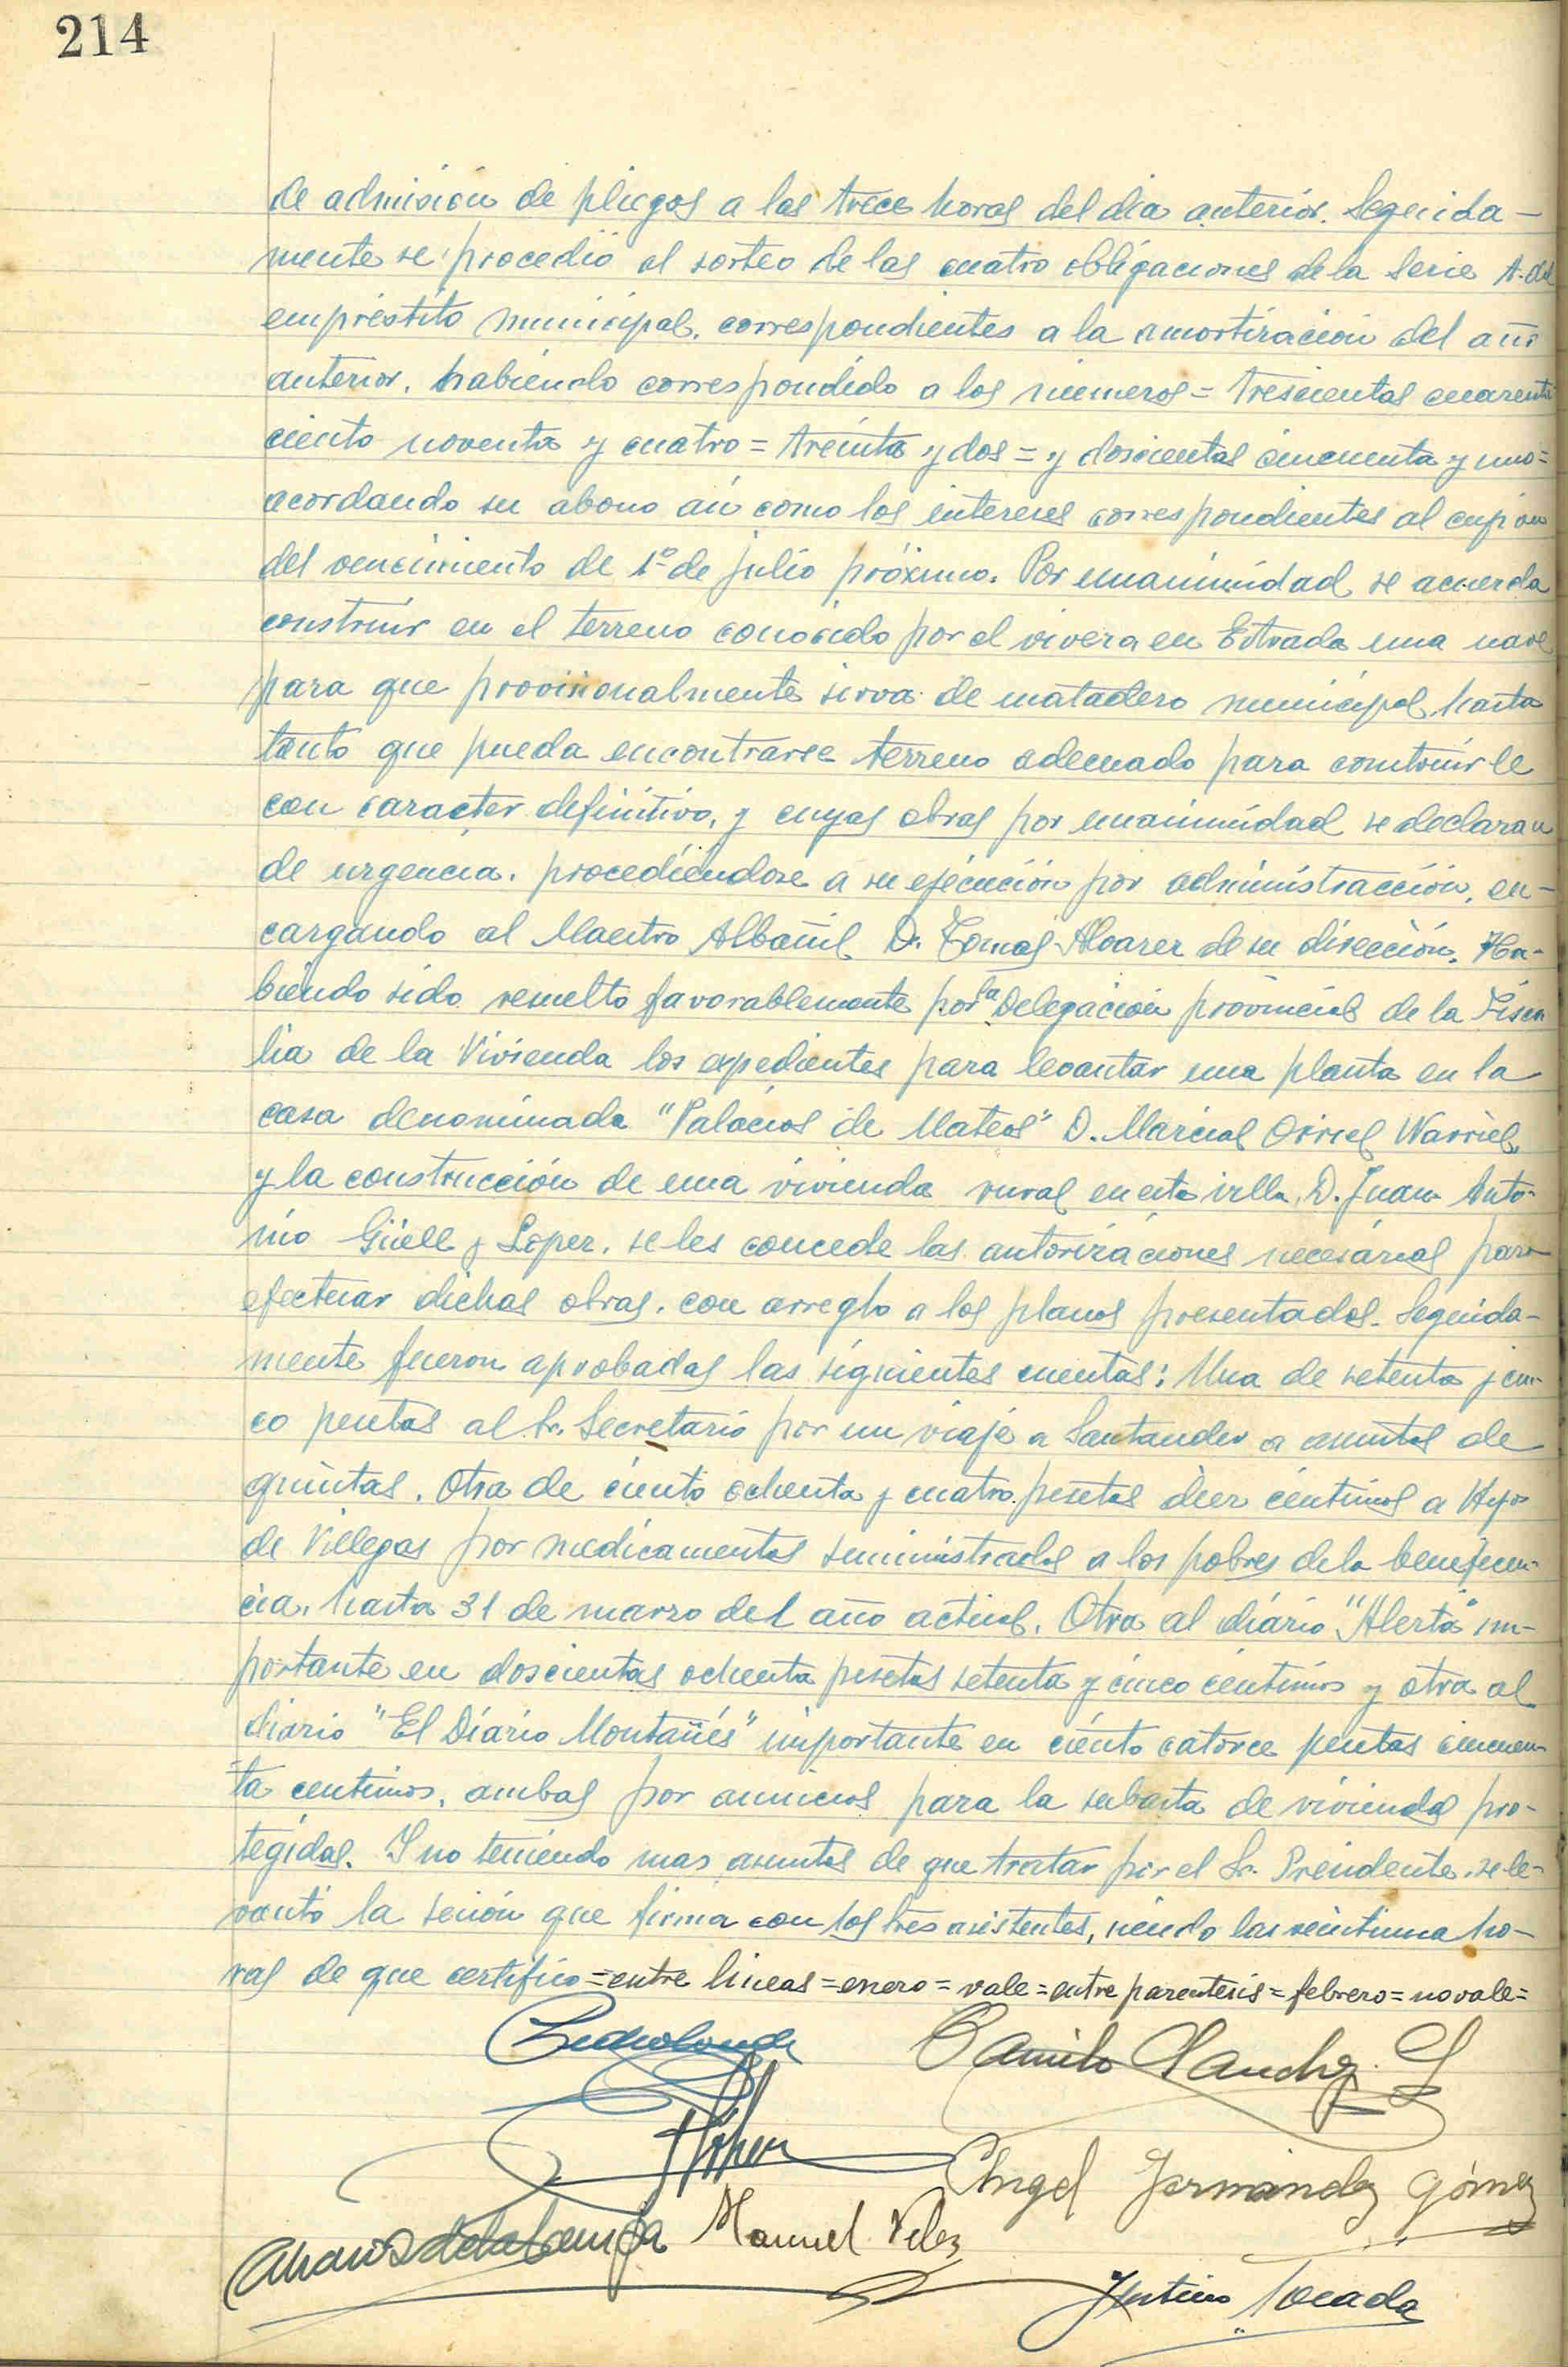 214
de admisión de pliegos a las trece horas del dia anterior. Seguida-
mente se procedió al sorteo de las cuatro obligaciones de la Serie A. del
empréstito municipal. correspondientes a la amortización del año
anterior. habiendo correspondido a los números = trescientas cuarenta
ciento noventa y cuatro = treinta y dos = y doscientas cincuenta y uno =
acordando su abono asi como los intereses correspondientes al cupón
del vencimiento de 1º de julio próximo. Por unanimidad se acuerda
construir en el terreno conocido por el vivera en Estrada una nave
para que provisionalmente sirva de matadero municipal, hasta
tanto que pueda encontrarse terreno adecuado para construirle
con caracter definitivo, y cuyas obras por unanimidad se declaran
de urgencia. procediéndose a su ejecución por administracción, en-
cargando al Maestro Albañil D. Tomas Alvarez de su dirección. Ha-
biendo sido resuelto favorablemente por la Delegación provincial de la Fisca
lia de la Vivienda los expedientes para levantar una planta en la
casa denominada "Palacios de Mateos" D. Marcial
y la construcción de una vivienda rural en esta villa, D. Juan Anto-
nio Güell y Lopez. se les concede las autorizaciones necesarias para
efectuar dichas obras. con arreglo a los planos presentados. Seguida-
mente fueron aprobadas las siguientes cuentas: Una de setenta y cin-
co pesetas al Sr. Secretario por un viaje a Santander a asuntos de
quintas. Otra de ciento ochenta y cuatro pesetas diez céntimos a Hijos
de Villegas por medicamentos suministrados a los pobres de la beneficen-
cia, hasta 31 de marzo del año actual. Otra al diário "Alerta" im-
portante en doscientas ochenta pesetas setenta y cinco céntimos y otra al
diario "El Diário Montañés" importante en ciento catorce pesetas cincuen-
ta centimos, ambas por anuncios para la subasta de viviendas pro-
tegidas. Y no teniendo mas asuntos de que tratar por el Sr. Presidente, se le-
vantó la sesión que firma con los tres asistentes, siendo las veintiuna ho-
ras de que certifico = entre lineas = enero = vale = entre parentesis = febrero = no vale =
Camilo Sanchez
Angel Fernández Gómez
Manuel Velez